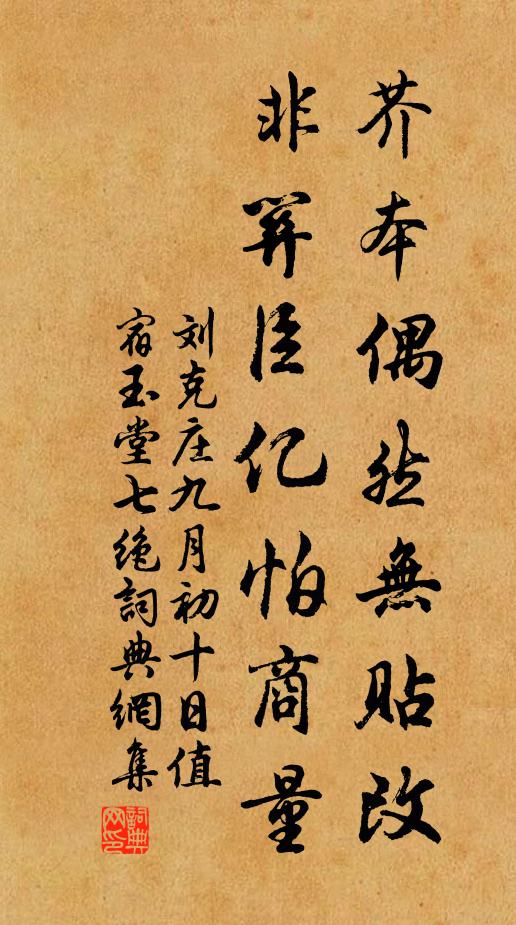 芥本偶然無貼改
非關臣亿怕商量
刘克庄九月初十日值
宿玉堂七絕詞典網集
詞典网印